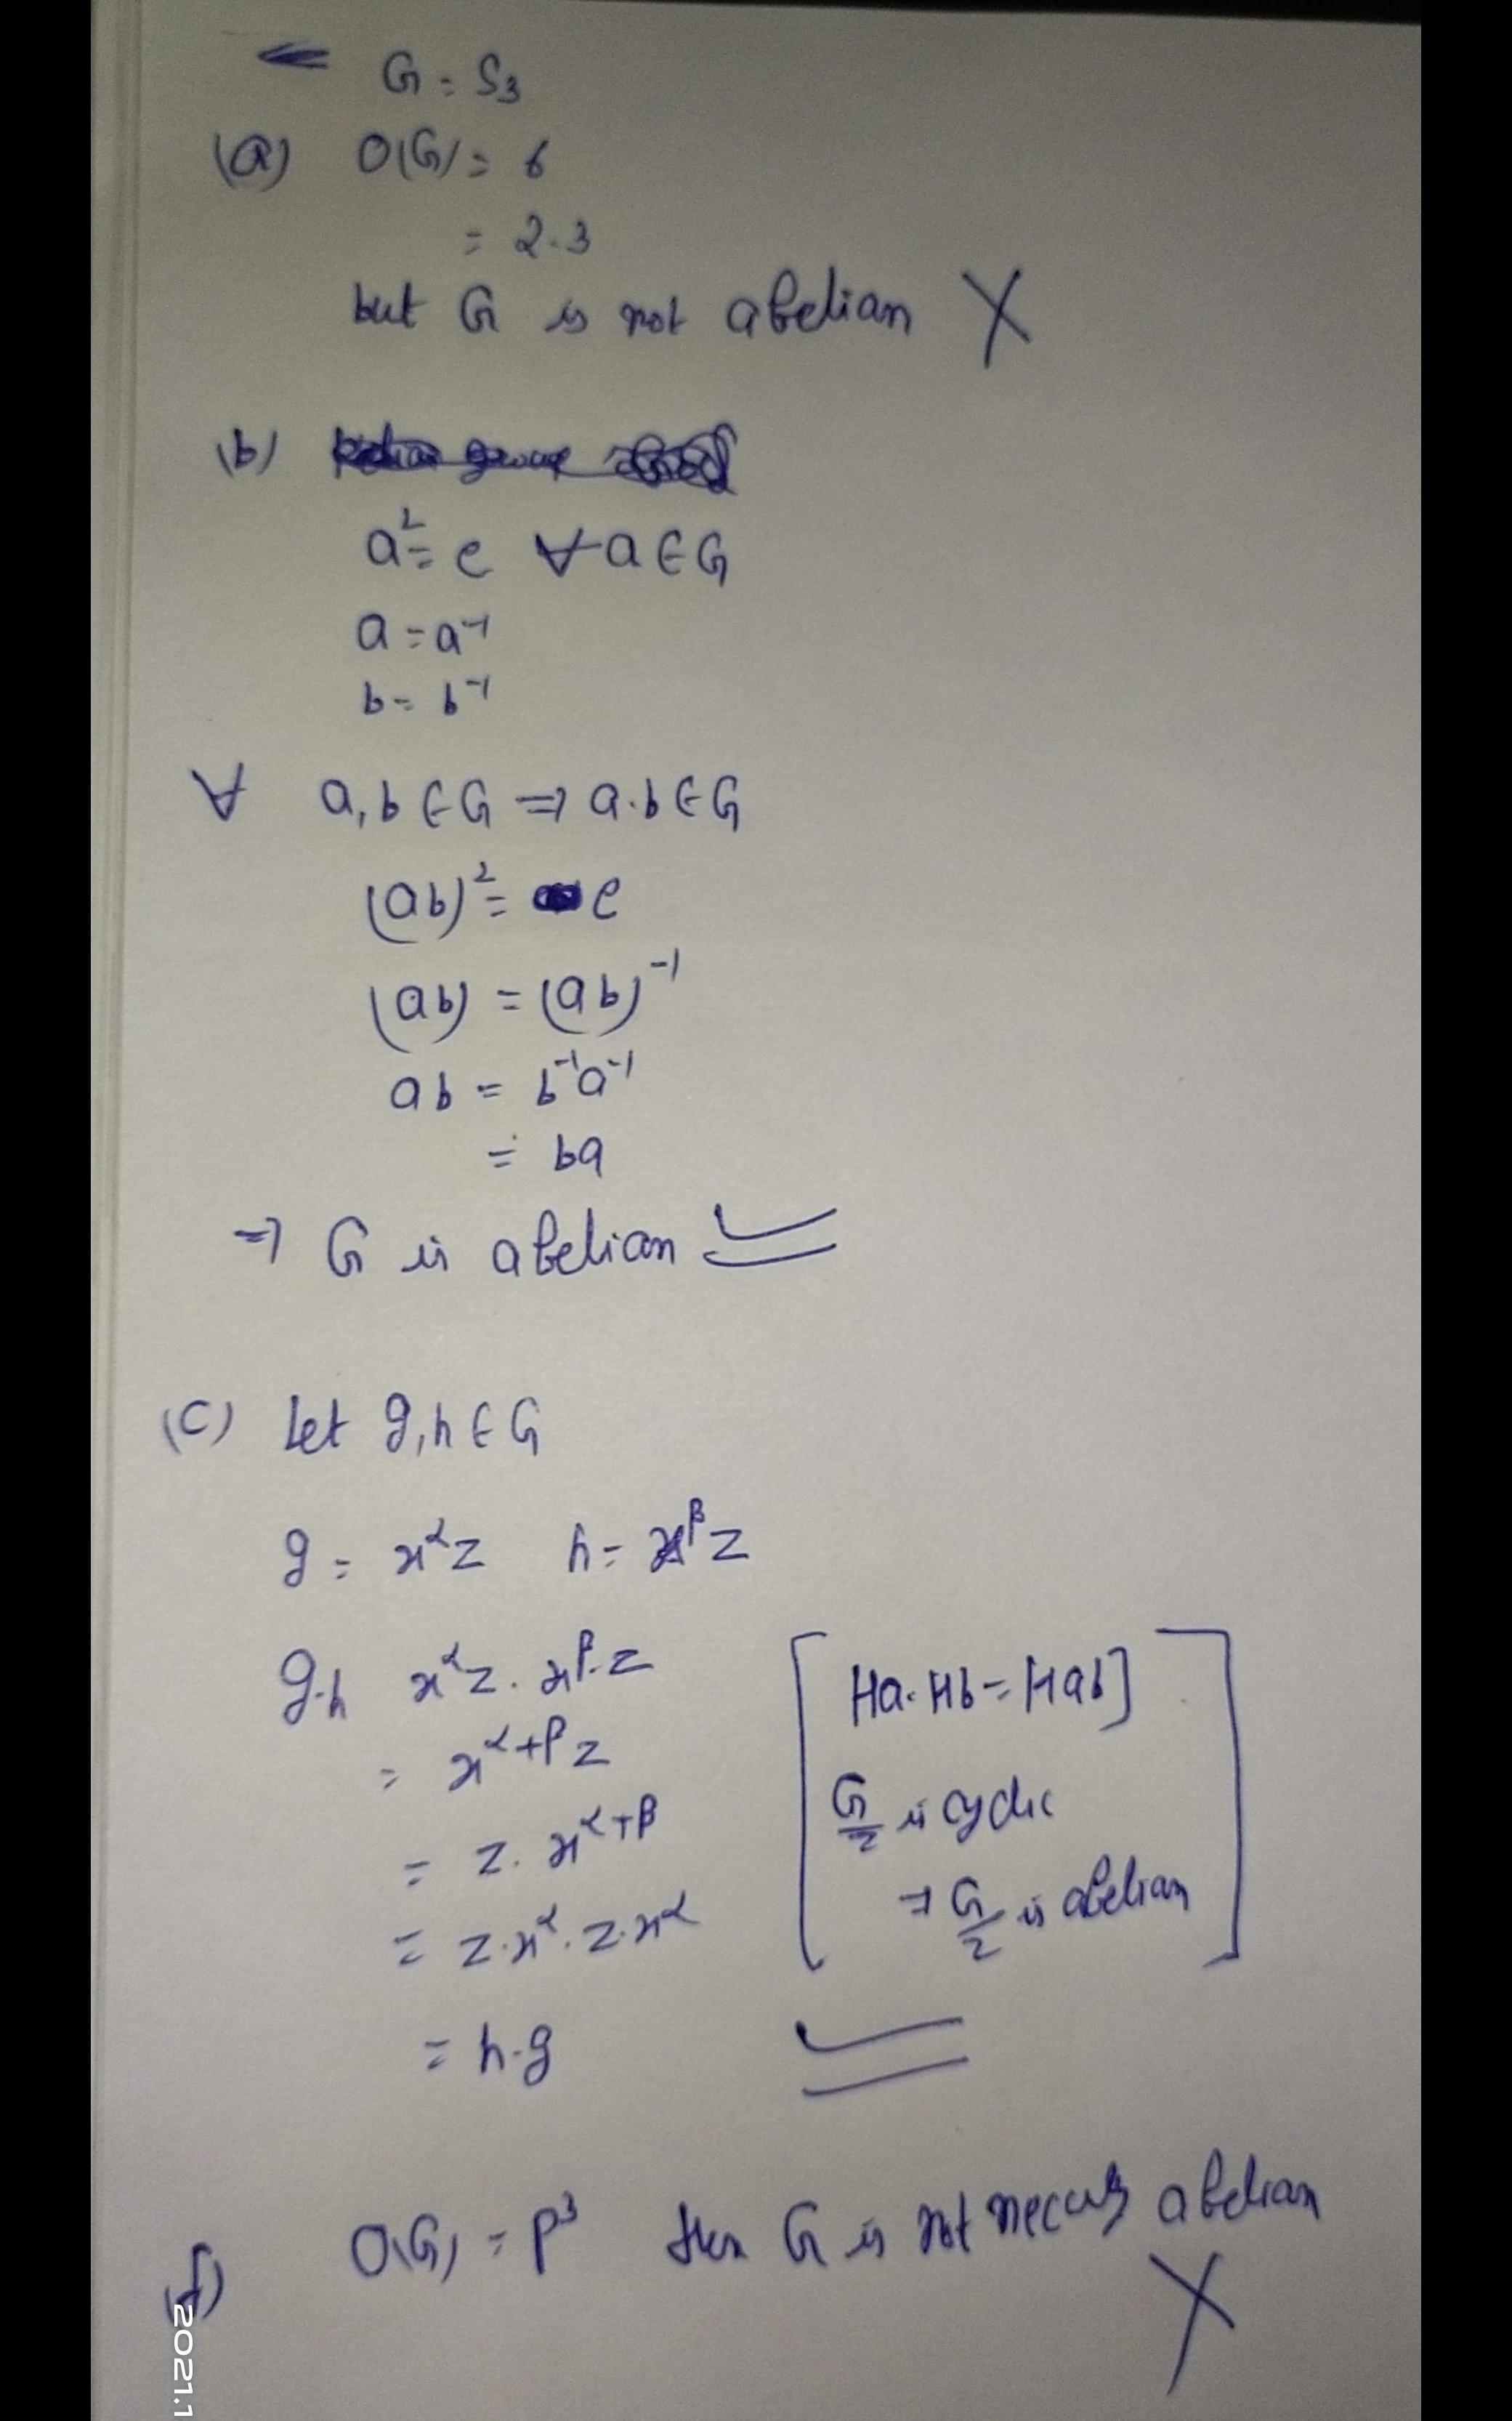 G = S₃
(a) O(G) = 6
= 2.3
but G is not abelian X
(b)
a² = e ∀ a ∈ G
a = a⁻¹
b = b⁻¹
∀ a, b ∈ G ⇒ a.b ∈ G
(ab)² = e
(ab) = (ab)⁻¹
ab = b⁻¹a⁻¹
= ba
⇒ G is abelian ✓
(C) Let g, h ∈ G
g = x^α z h = x^β z
g.h x^α z . x^β . z
= x^α+β z
= z. x^α+β
= z.x^α . z.x^α
= h.g ✓
[Ha. Hb = Hab]
G/z is cyclic
⇒ G/z is abelian
(d) O(G) = p³ then G is not abelian
X
2021.1